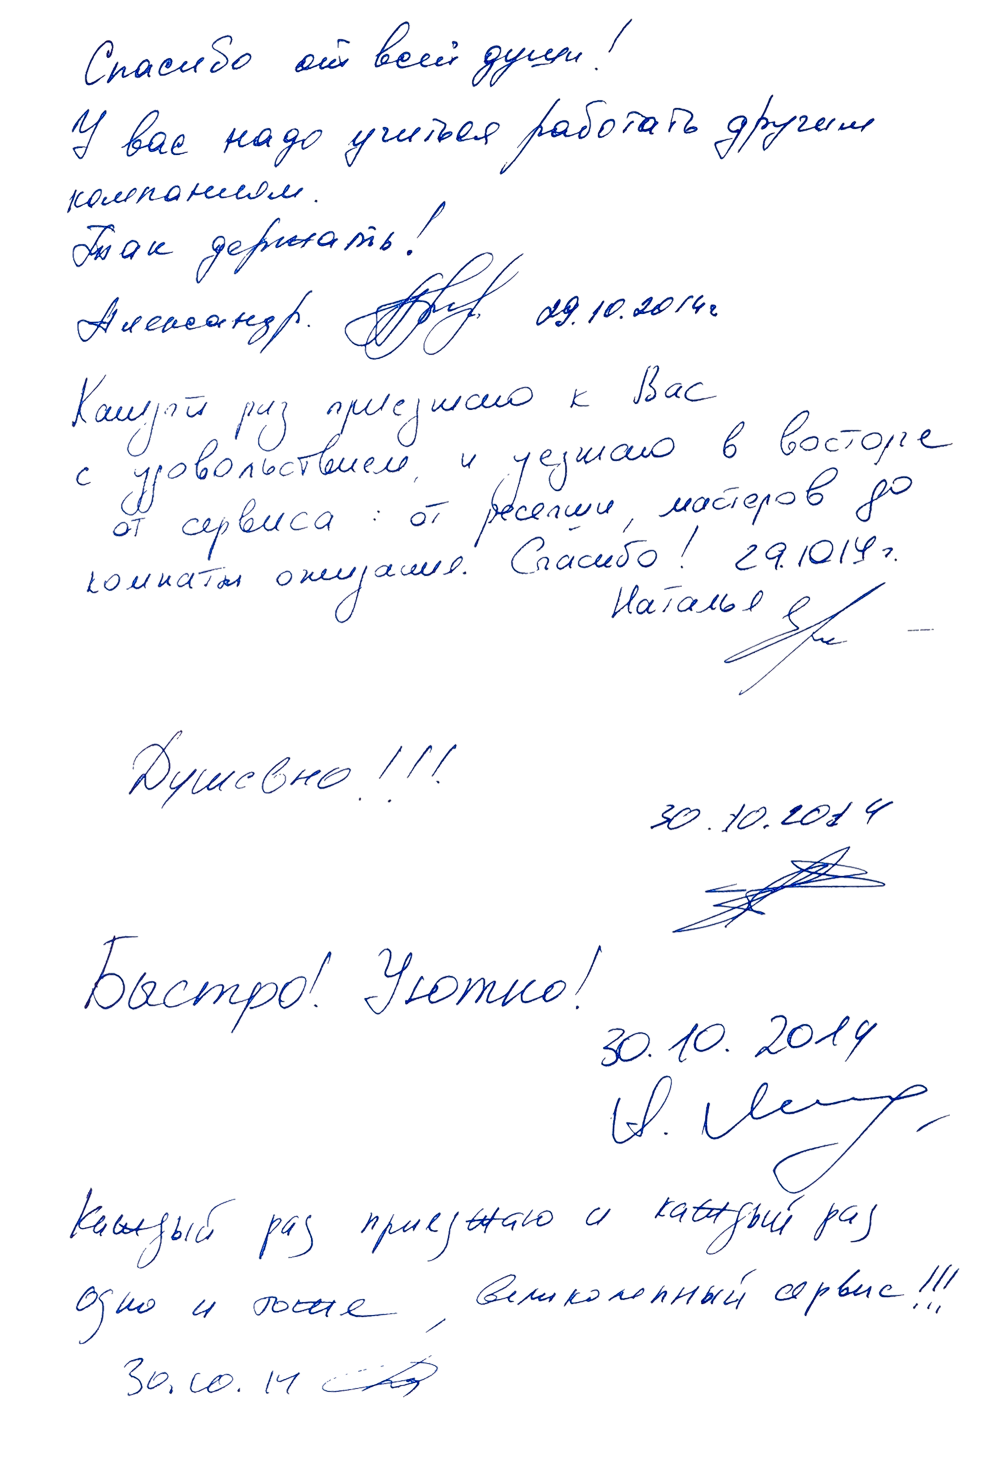 Спасибо от всей души!
У вас надо учиться работать другим
компаниям.
Так держать!
Александр. 29.10.2014г
Каждый раз приезжаю к Вас
с удовольствием, и уезжаю в восторге
от сервиса: от ресепшн, мастеров до
комнаты ожидания. Спасибо! 29.1014г.
Наталья
Душевно!!!
30.10.2014
Быстро! Уютно!
30.10.2014
Каждый раз приезжаю и каждый раз
одно и тоже, великолепный сервис!!!
30.10.14